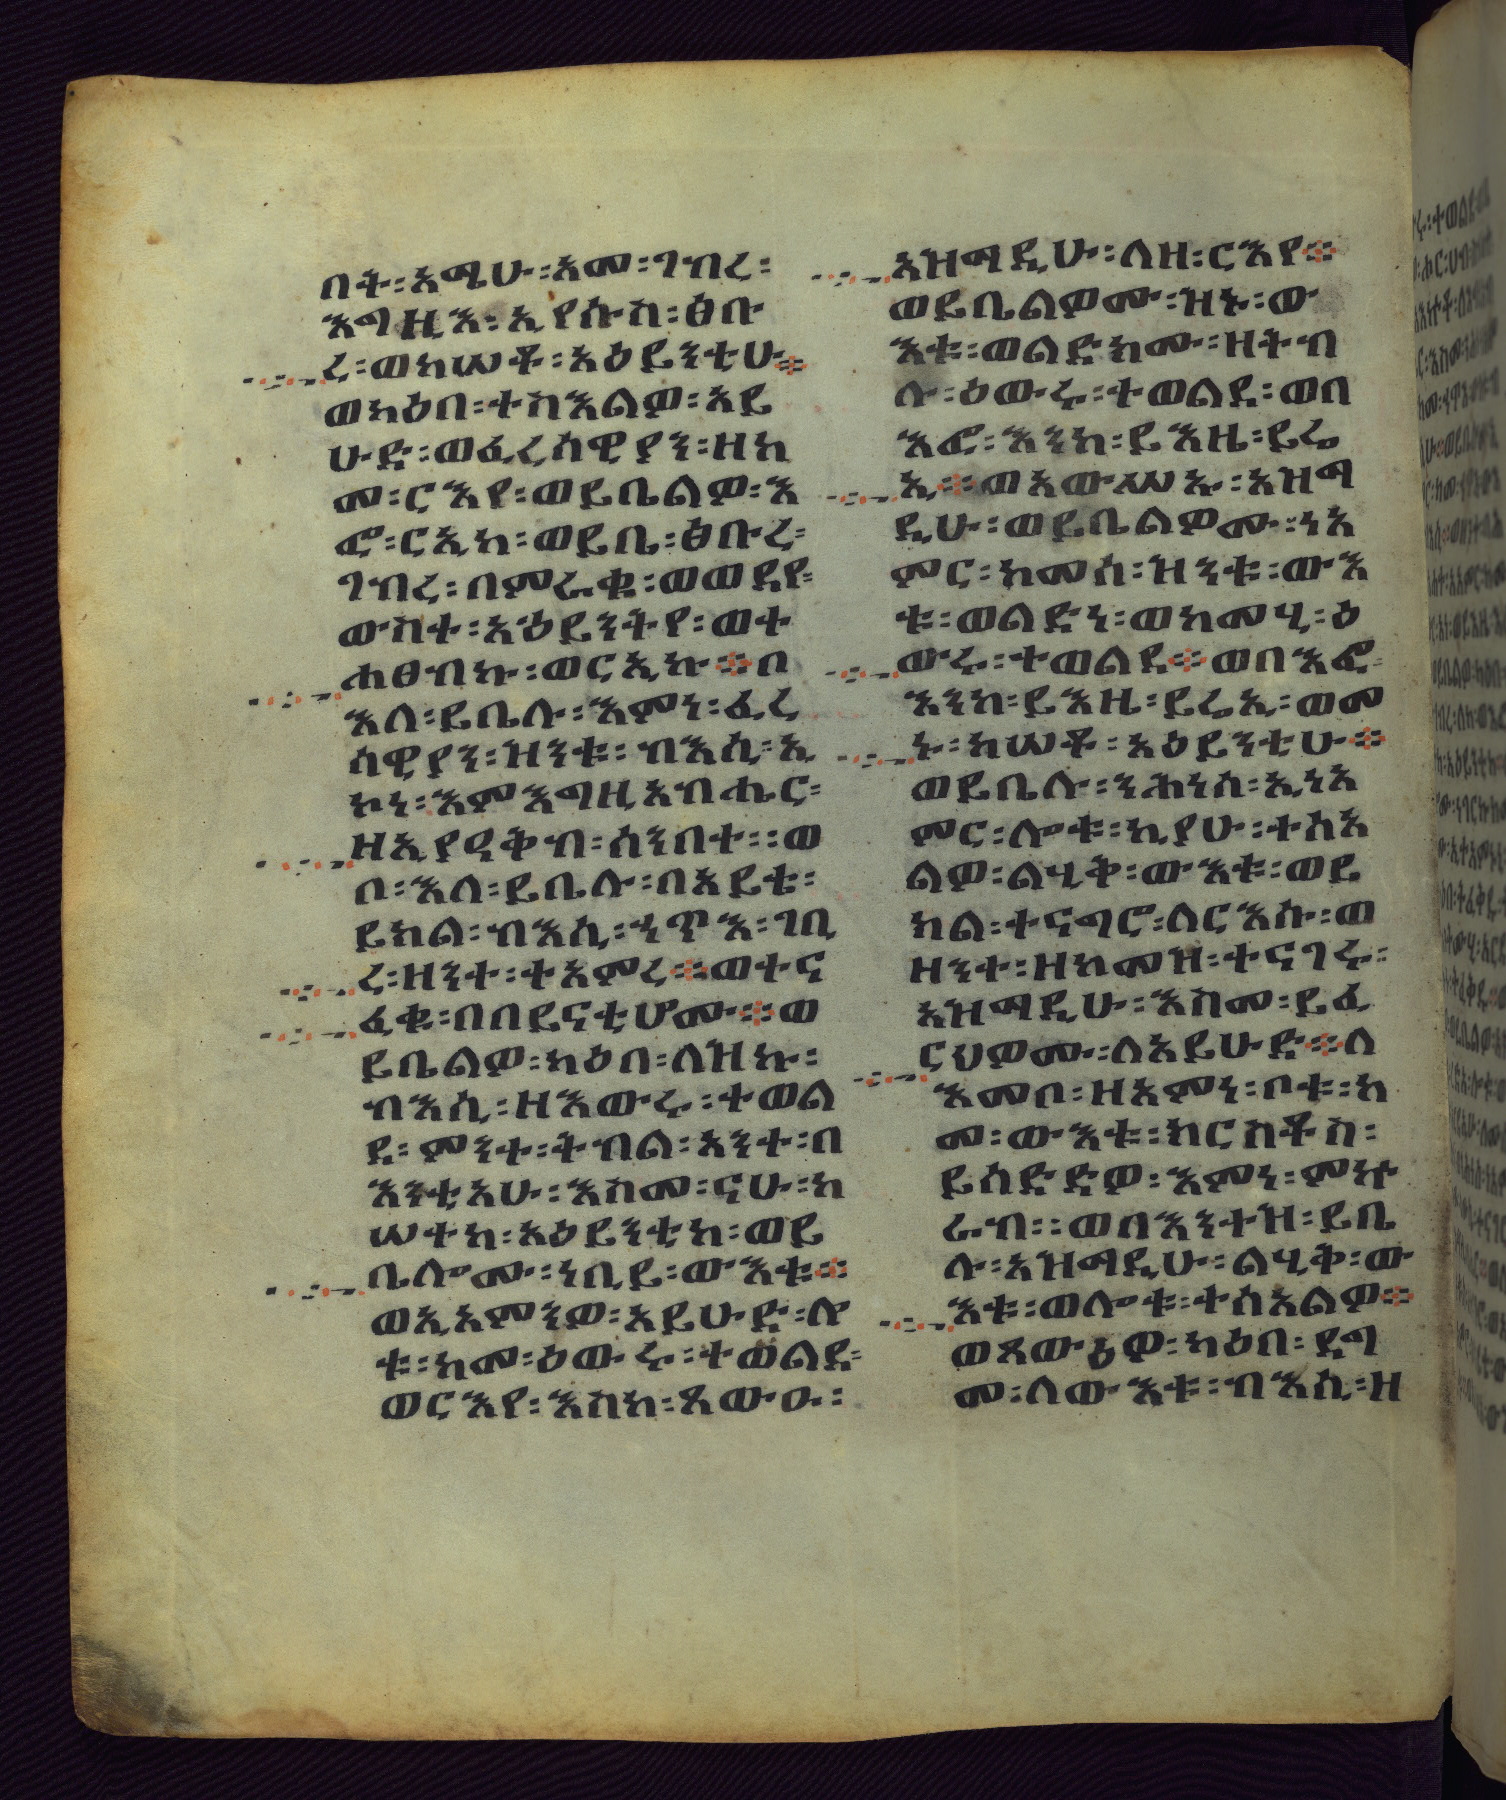 በት፡አሜሁ፡አመ፡ገብረ፡
እግዚእ፡ኢየሱስ፡ፅቡ
ረ፡ወከሠቶ፡አዕይንቲሁ፨
ወካዕበ፡ተስእልዎ፡አይ
ሁድ፡ወፈሪሳዊያን፡ዘከ
መ፡ርእየ፡ወይቤልዎ፡እ
ፎ፡ርኢከ፡ወይቤ፡ፅቡረ፡
ገብረ፡በምራቁ፡ወወደየ፡
ውስተ፡አዕይንትየ፡ወተ
ሐፀብኩ፡ወርኢኩ፨ቦ
እለ፡ይቤሉ፡እምነ፡ፈሪ
ሳዊያን፡ዝንቱ፡ብእሲ፡ኢ
ኮነ፡እምእግዚአብሔር፡
ዘኢያዓቅብ፡ሰንበተ፡፡ወ
ቦ፡እለ፡ይቤሉ፡በአይቴ፡
ይክል፡ብእሲ፡ኃጥእ፡ገቢ
ረ፡ዘንተ፡ተአምረ፨ወተና
ፈቁ፡በበይናቲሆሙ፨ወ
ይቤልዎ፡ካዕበ፡ለዝኩ፡
ብእሲ፡ዘእውሩ፡ተወል
ደ፡ምንተ፡ትብል፡አንተ፡በ
እንቲአሁ፡እስመ፡ናሁ፡ከ
ሠተ፡አዕይንቲከ፡ወይ
ቤሎሙ፡ነቢይ፡ውእቱ፨
ወኢአምንዎ፡አይሁድ፡ሎ
ቱ፡ከመ፡ዕውሩ፡ተወልደ፡
ወርእየ፡እስከ፡ጸውዑ፡
አዝማዲሁ፡ለዘ፡ርእየ፨
ወይቤልዎሙ፡ዝኑ፡ው
እቱ፡ወልድክሙ፡ዘትብ
ሉ፡ዕውሩ፡ተወልደ፡ወበ
እፎ፡እንከ፡ይእዜ፡ይሬ
ኢ፨ወአውሥኡ፡አዝማ
ዲሁ፡ወይቤልዎሙ፡ነአ
ምር፡ከመሰ፡ዝንቱ፡ውእ
ቱ፡ወልድነ፡ወከመሂ፡ዕ
ውሩ፡ተወልደ፨ወበእፎ፡
እንከ፡ይእዜ፡ይሬኢ፡ወመ
ኑ፡ከሠቶ፡አዕይንቲሁ፨
ወይቤሉ፡ንሕነሰ፡ኢነአ
ምር፡ሎቱ፡ኪያሁ፡ተስአ
ልዎ፡ልሂቅ፡ውእቱ፡ወይ
ክል፡ተናግሮ፡ለርእሱ፡ወ
ዘንተ፡ዘከመዝ፡ተናገሩ፡
አዝማዲሁ፡እስመ፡ይፈ
ርህዎሙ፡ለአይሁድ፨ለ
እመቦ፡ዘአምነ፡ቦቱ፡ከ
መ፡ውእቱ፡ክርስቶስ፡
ይሰድድዎ፡እምነ፡ምኵ
ራብ፡፡ወበእንተዝ፡ይቤ
ሉ፡አዝማዲሁ፡ልሂቅ፡ው
እቱ፡ወሎቱ፡ተሰአልዎ፨
ወጸውዕዎ፡ካዕበ፡ዳግ
መ፡ለውእቱ፡ብእሲ፡ዘ